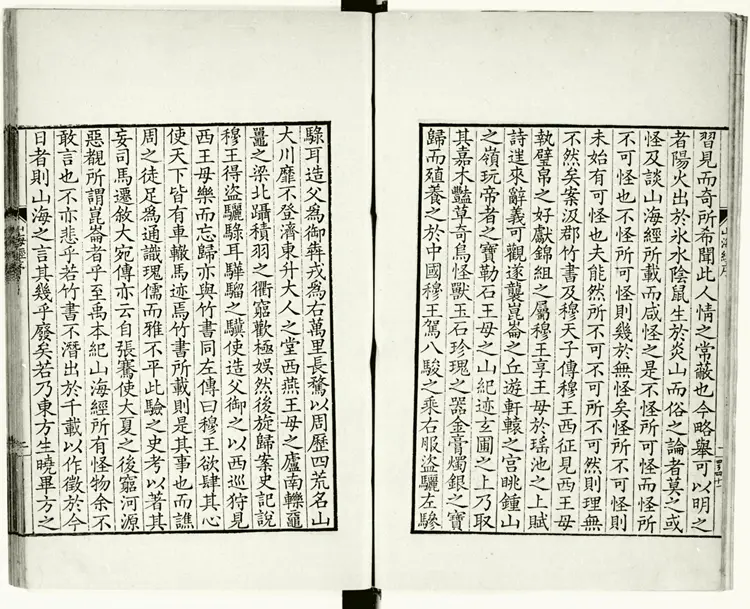 習見而奇所希聞此人情之常蔽也今略舉可以明之
者陽火出於氷水陰鼠生於炎山而俗之論者莫之或
怪及談山海經所載而咸怪之是不怪所可怪而怪所
不可怪也不怪所可怪則幾於無怪矣怪所不可怪則
未始有可怪也夫能然所不可不可所不可然則理無
不然矣案汲郡竹書及穆天子傳穆王西征見西王母
執璧帛之好獻錦組之屬穆王享王母於瑤池之上賦
詩往來辭義可觀遂襲崑崙之丘遊軒轅之宮眺鍾山
之嶺玩帝者之寶勒石王母之山紀迹玄圃之上乃取
其嘉木豔草奇鳥怪獸玉石珍瑰之器金膏燭銀之寶
歸而殖養之於中國穆王駕八駿之乘右服盜驪左驂
騄耳造父為御犇戎為右萬里長騖以周歷四荒名山
大川靡不登濟東升大人之堂西燕王母之廬南轢黿
鼉之梁北躡積羽之衢窮歡極娛然後旋歸案史記說
穆王得盜驪騄耳驊騮之驥使造父御之以西巡狩見
西王母樂而忘歸亦與竹書同左傳曰穆王欲肆其心
使天下皆有車轍馬迹焉竹書所載則是其事也而譙
周之徒足為通識瑰儒而雅不平此驗之史考以著其
妄司馬遷敘大宛傳亦云自張騫使大夏之後窮河源
惡覩所謂崑崙者乎至禹本紀山海經所有怪物余不
敢言也不亦悲乎若竹書不潛出於千載以作徵於今
日者則山海之言其幾乎廢矣若乃東方生曉畢方之
山海經序
山海經序